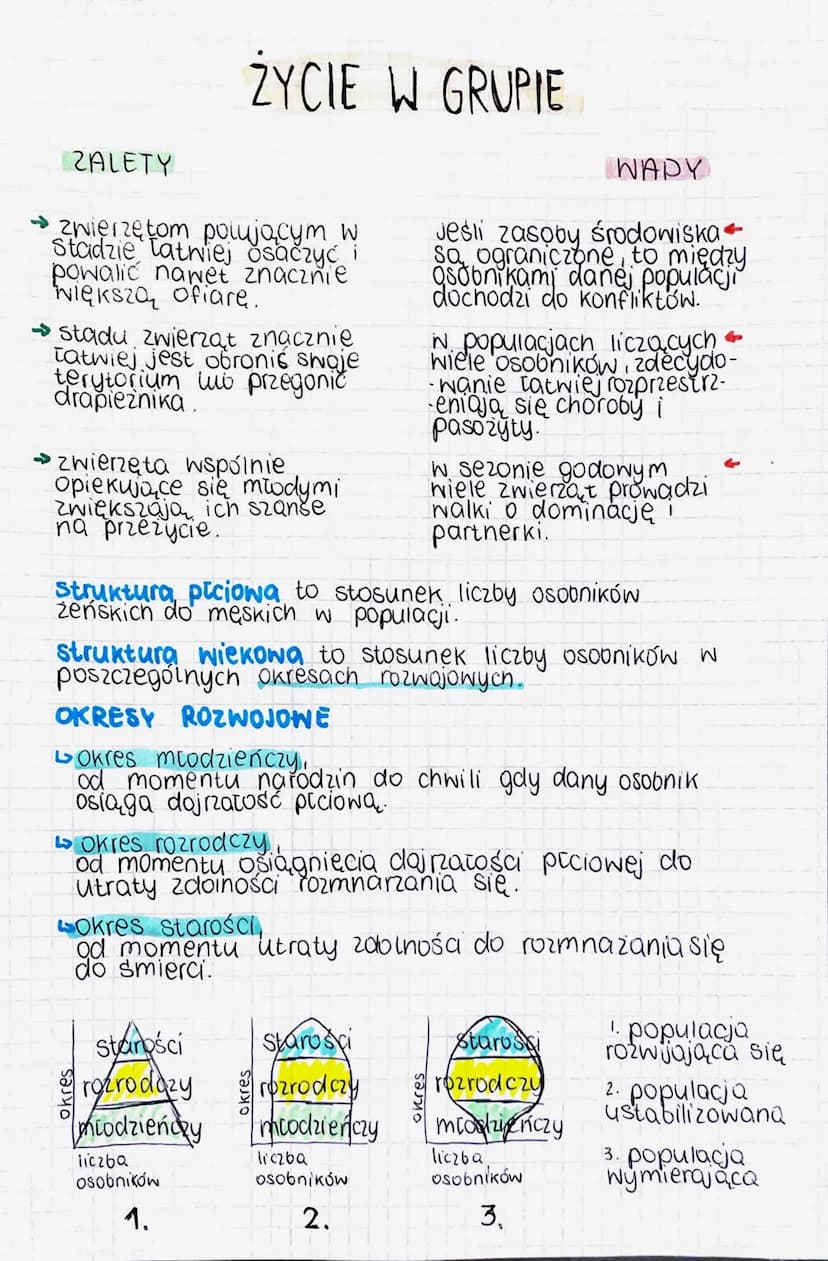 ŻYCIE W GRUPIE
ZALETY
→ zwierzętom polującym w
stadzie łatwiej osaczyć i
powalić nawet znacznie
większą ofiarę.
→ stadu zwierząt znacznie
łatwiej jest obronić swoje
terytorium lub przegonić
drapieżnika.
→ zwierzęta wspólnie
opiekujące się młodymi
zwiększają ich szanse
na przeżycie.
WADY
Jeśli zasoby środowiska ←
są ograniczone, to między
osobnikami danej populacji
dochodzi do konfliktów.
w populacjach liczących ←
wiele osobników, zdecydo-
-wanie łatwiej rozprzestrz-
-eniają się choroby i
pasożyty.
w sezonie godowym ←
wiele zwierząt prowadzi
walki o dominację i
partnerki.
struktura płciowa to stosunek liczby osobników
żeńskich do męskich w populacji.
struktura wiekowa to stosunek liczby osobników w
poszczególnych okresach rozwojowych.
OKRESY ROZWOJOWE
↳ okres młodzieńczy,
od momentu narodzin do chwili gdy dany osobnik
osiąga dojrzałość płciową.
↳ okres rozrodczy,
od momentu osiągnięcia dojrzałości płciowej do
utraty zdolności rozmnarzania się.
↳ okres starości,
od momentu utraty zdolności do rozmnażania się
do śmierci.
okres
starości
rozrodczy
młodzieńczy
liczba
osobników
1.
okres
starości
rozrodczy
młodzieńczy
liczba
osobników
2.
okres
starości
rozrodczy
młodzieńczy
liczba
osobników
3.
1. populacja
rozwijająca się
2. populacja
ustabilizowana
3. populacja
wymierająca